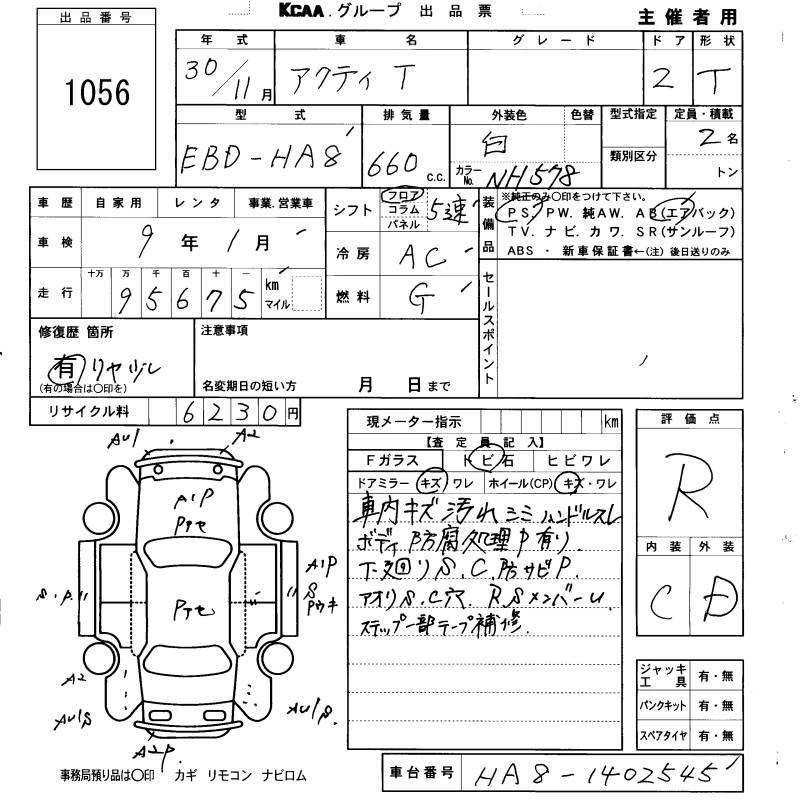 KCAA.グループ 出品票
主催者用
出品番号
1056
年式 車名 グレード ドア 形状
30/11月 アクティ T 2 T
型式 排気量 外装色 色替 型式指定 定員・積載
EBD-HA8 660 c.c. 白 2名
カラーNo. NH578 類別区分 トン
車歴 自家用 レンタ 事業.営業車
シフト フロア コラム パネル 5速
装備品 ※純正のみ○印をつけて下さい。
PS. PW. 純AW. AB(エアバック)
TV. ナビ. カワ. SR(サンルーフ)
ABS ・ 新車保証書←(注) 後日送りのみ
車検 9年1月
冷房 AC
走行 十万 万 千 百 十 一
95675 km マイル
燃料 G
セールスポイント
修復歴 箇所
有 リヤ
(有の場合は○印を)
注意事項
名変期日の短い方 月 日まで
リサイクル料 6230円
現メーター指示 km
【査定員記入】
Fガラス トビ石 ヒビワレ
ドアミラー キズ/ワレ ホイール(CP) キズ・ワレ
車内キズ汚れシミハンドルスレ
ボディ防腐処理P有り.
下廻りS.C.防サビP.
アオリS.C穴. RSメンバーU
ステップ一部テープ補修.
評価点
R
内装 外装
C D
ジャッキ工具 有・無
パンクキット 有・無
スペアタイヤ 有・無
AU1 A2
A1P
Pテセ
A1P
S
Pウキ
S.P
Pテセ
A2
AU1S
AU1S.
A2P.
事務局預り品は○印 カギ リモコン ナビロム
車台番号 HA8-1402545